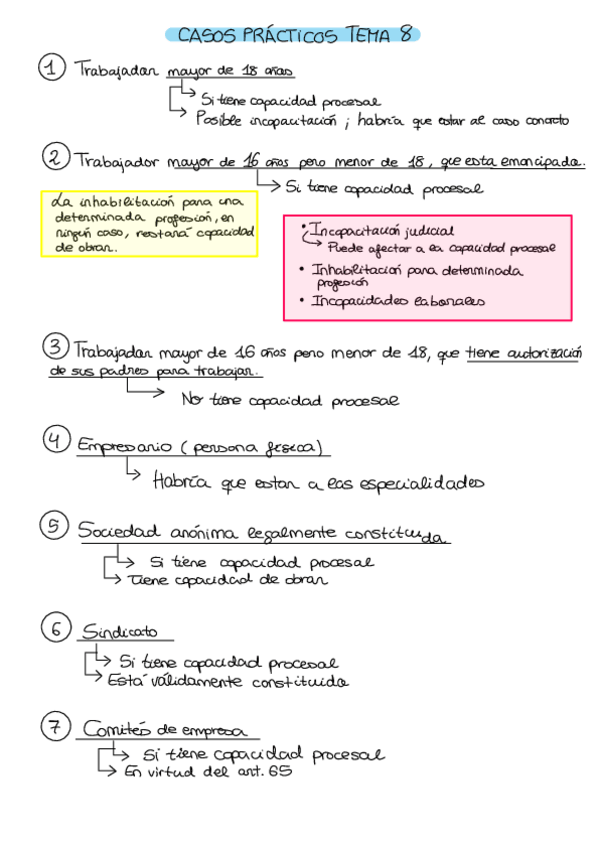 CASOS PRÁCTICOS TEMA 8
1 Trabajador mayor de 18 años
Si tiene capacidad procesal
Posible incapacitación; habría que estar al caso concreto
2 Trabajador mayor de 16 años pero menor de 18, que esta emancipado.
Si tiene capacidad procesal
La inhabilitación para una
determinada profesión, en
ningún caso, restará capacidad
de obrar.
• Incapacitación judicial
Puede afectar a la capacidad procesal
• Inhabilitación para determinada
profesión
• Incapacidades laborales
3 Trabajador mayor de 16 años pero menor de 18, que tiene autorización
de sus padres para trabajar.
No tiene capacidad procesal
4 Empresario (persona física)
Habría que estar a las especialidades
5 Sociedad anónima legalmente constituida
Si tiene capacidad procesal
Tiene capacidad de obrar
6 Sindicato
Si tiene capacidad procesal
Está válidamente constituido
7 Comités de empresa
Si tiene capacidad procesal
En virtud del art. 65